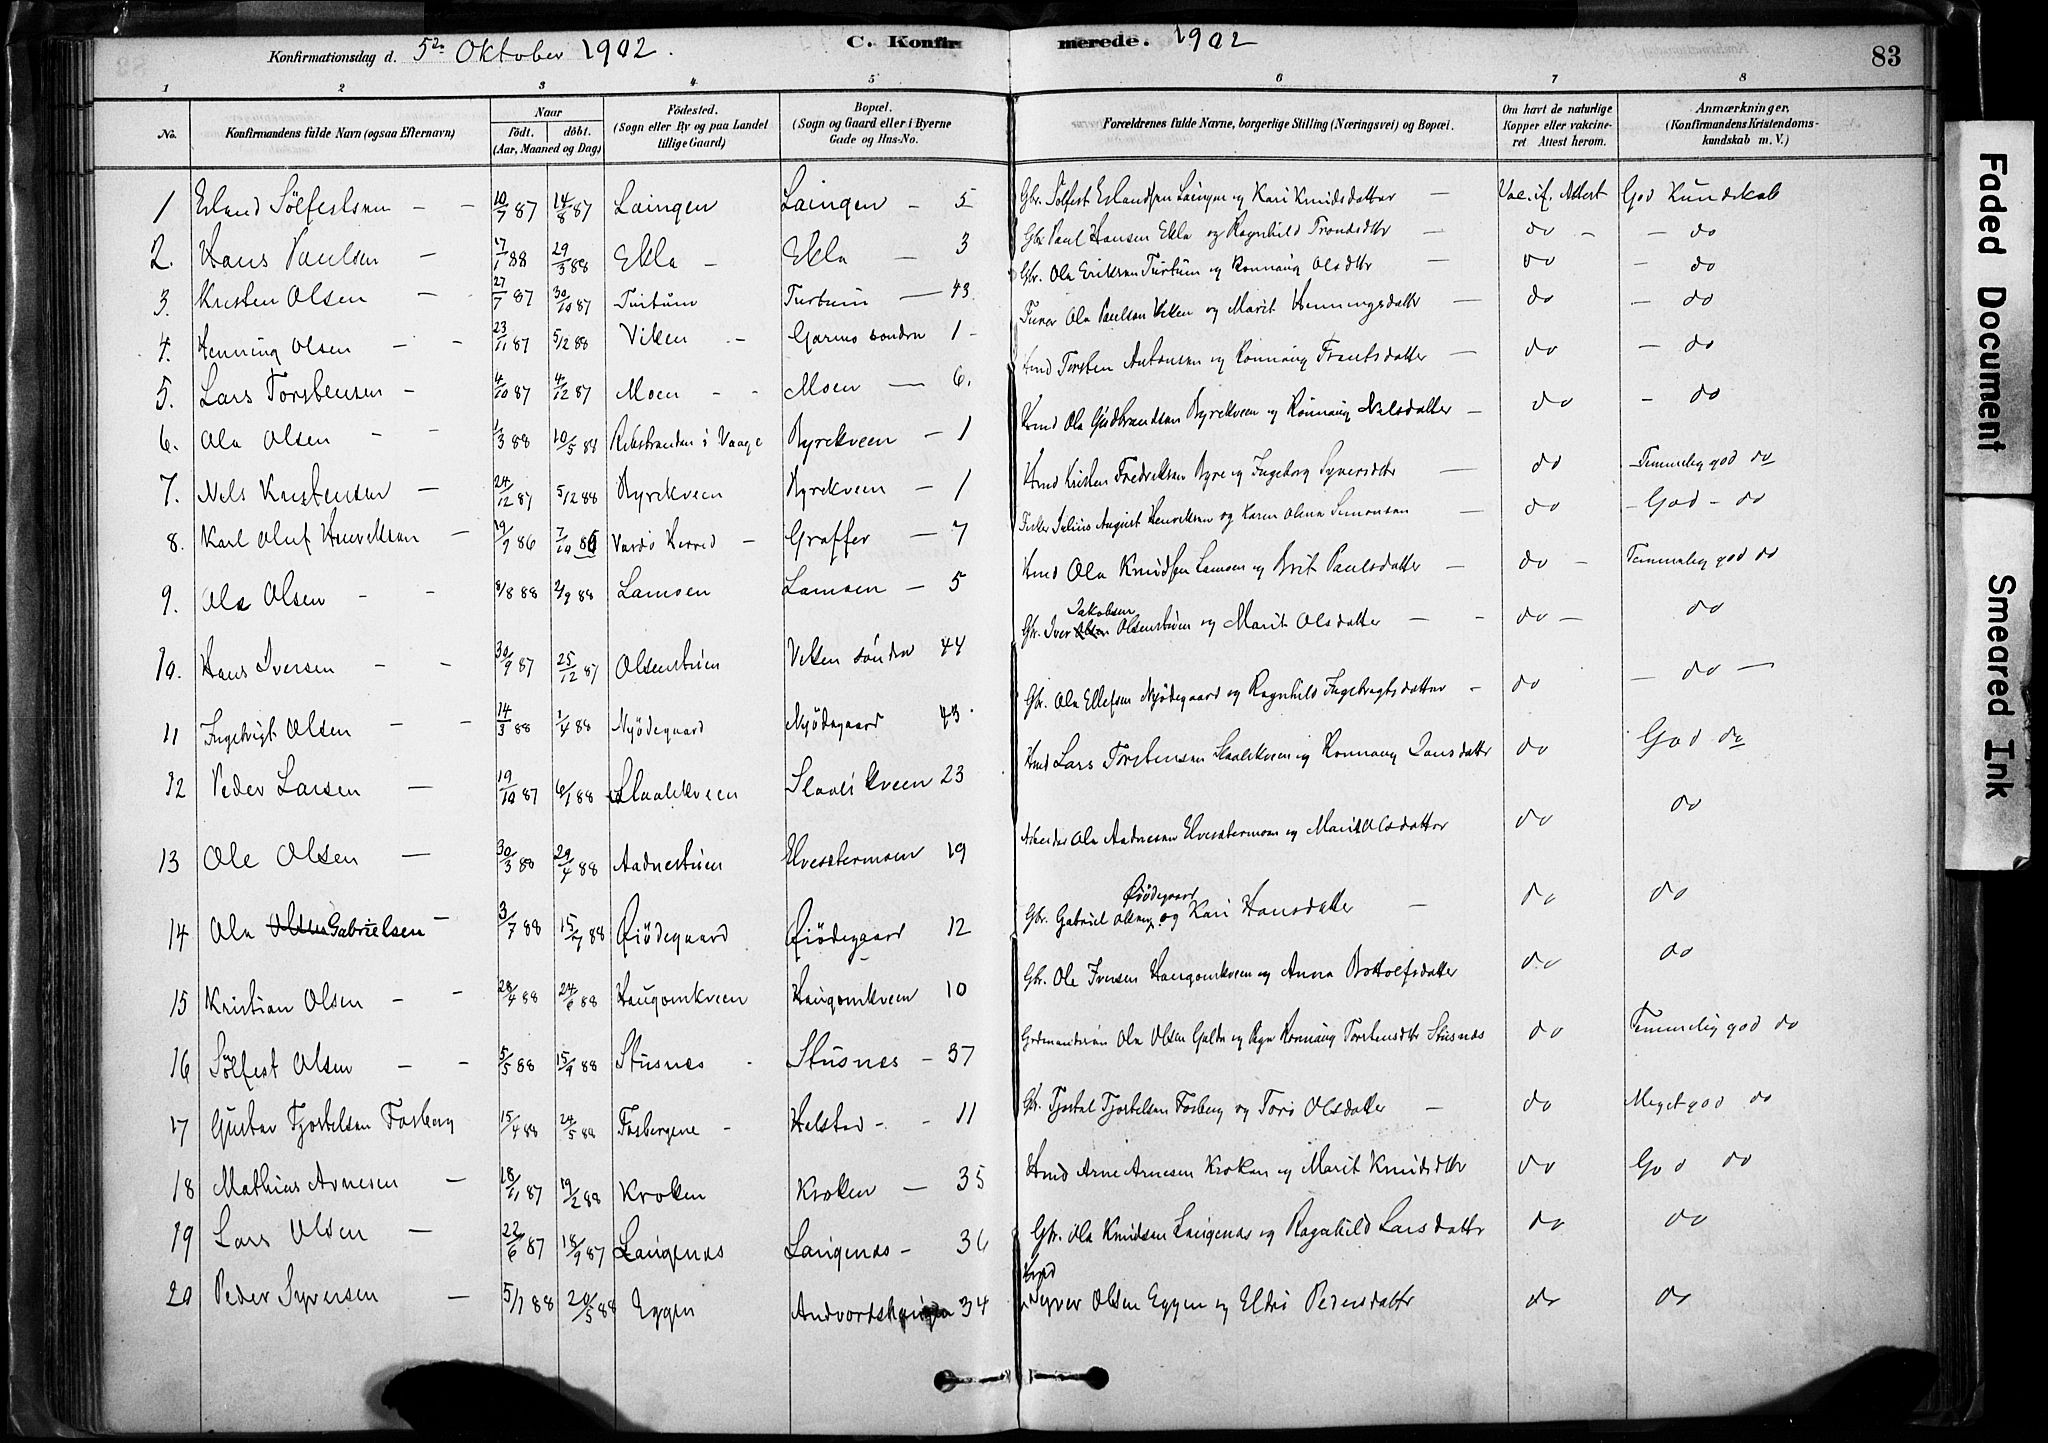 Konfirmationsdag d. 5te Oktober 1902. C. Konfirmerede. 1902 83
1 2 3 4 5 6 7 8
No. Konfirmandens fulde Navn (ogsaa Efternavn) Naar Født. døbt. (Aar, Maaned og Dag) Födested. (Sogn eller By og paa Landet tillige Gaard) Bopæl. (Sogn og Gaard eller i Byerne Gade og Hus-No. Forældrenes fulde Navne, borgerlige Stilling (Næringsvei) og Bopæl. Om havt de naturlige Kopper eller vakcineret Attest herom. Anmærkninger, (Konfirmandens Kristendomskundskab m. V.)
1 Erland Sölfestsen 10/7 87 14/8 87 Laingen Laingen 5 Gbr. Sölfest Erlandsen Laingen og Kari Knudsdatter Vac. if. Attest God Kundskab
2. Hans Paulsen 17/1 88 29/3 88 Ekla Ekla 3 Gbr. Paul Hansen Ekla og Ragnhild Trondsdtr do do
3. Kristen Olsen 27/7 87 30/10 87 Turtum Turtum 43 Gbr. Ola Eriksen Turtum og Rønnaug Olsdtr do do
4. Henning Olsen 23/11 87 5/2 88 Viken Garmo søndre 1 Ola Paulsen Viken og Marit Henningsdatter do do
5. Lars Torstensen 4/10 87 4/12 87 Moen Moen 6. Hmd Torsten Antonsen og Rønnaug Frantsdatter do do
6. Ola Olsen 1/3 88 10/5 88 i Vaage Byrekveen 1 Hmd Ola Gudbrandsen Byrekveen og Rønnaug Nelsdatter do do
7. Nels Kristensen 24/12 87 5/2 88 Byrekveen Byrekveen 1 Hmd Kristen Fredriksen Byre og Ingeborg Syversdtr do Temmelig god do
8. Karl Oluf Henriksen 19/7 86 7/10 86 Vardö Herred Graffer 7 Fisker Julius August Henriksen og Karen Olena Simonsen do God do
9. Ole Olsen 8/8 88 2/9 88 Lamoen Lamoen 5 Hmd Ola Knudsen Lamoen og Brit Paulsdatter do Temmelig god do
10. Hans Iversen 30/9 87 25/12 87 Olsenstuen Viken söndre 44 Gbr. Iver Jakobsen Olsenstuen og Marit Olsdatter do do
11 Ingebrigt Olsen 14/3 88 1/4 88 Nyödegaard Nyödegaard 43 Gbr. Ola Ellefsen Nyödegaard og Ragnhild Ingebrigtsdatter do do
12 Peder Larsen 19/10 87 6/1 88 Slaalikveen Slaalikveen 23 Hmd Lars Torstensen Slaalikveen og Rønnaug Larsdatter do God do
13 Ole Olsen 30/3 88 29/4 88 Aadnestuen Elvesætermoen 19 Arbeider Ola Aadnesen Elvesætermoen og Marit Olsdatter do do
14 Ola Olsen Gabrielsen 3/7 88 15/7 88 Øiödegaard Øiödegaard 12 Gbr. Gabriel Olsen Øiödegaard og Kari Hansdatter do do
15 Kristian Olsen 28/4 88 24/6 88 Haugomkveen Haugomkveen 10 Gbr. Ole Iversen Haugomkveen og Anna Botholfsdatter do do
16 Sölfest Olsen 5/5 88 15/9 88 Stusnes Stusnes 37 Ola Olsen Galde og Rønnaug Torstensdtr Stusnæs do Temmelig god do
17 Gustav Tjostelsen Fosberg 15/4 88 24/5 88 Fosbergene Helstad 11 Gbr. Tjostel Tjostelsen Fosberg og Toro Olsdatter do Meget god do
18 Mathias Arnesen 18/11 87 19/2 88 Kroken Kroken 35 Hmd Arne Arnesen Kroken og Marit Knudsdtr do God do
19 Lars Olsen 22/6 87 18/9 87 Langenæs Langenæs 36 Gbr. Ola Knudsen Langenæs og Ragnhild Larsdatter do do
20 Peder Syversen 5/1 88 20/5 88 Eggen Andvord 34 Hmd Syver Olsen Eggen og Eldri Pedersdatter do do
Faded Document
Smeared Ink